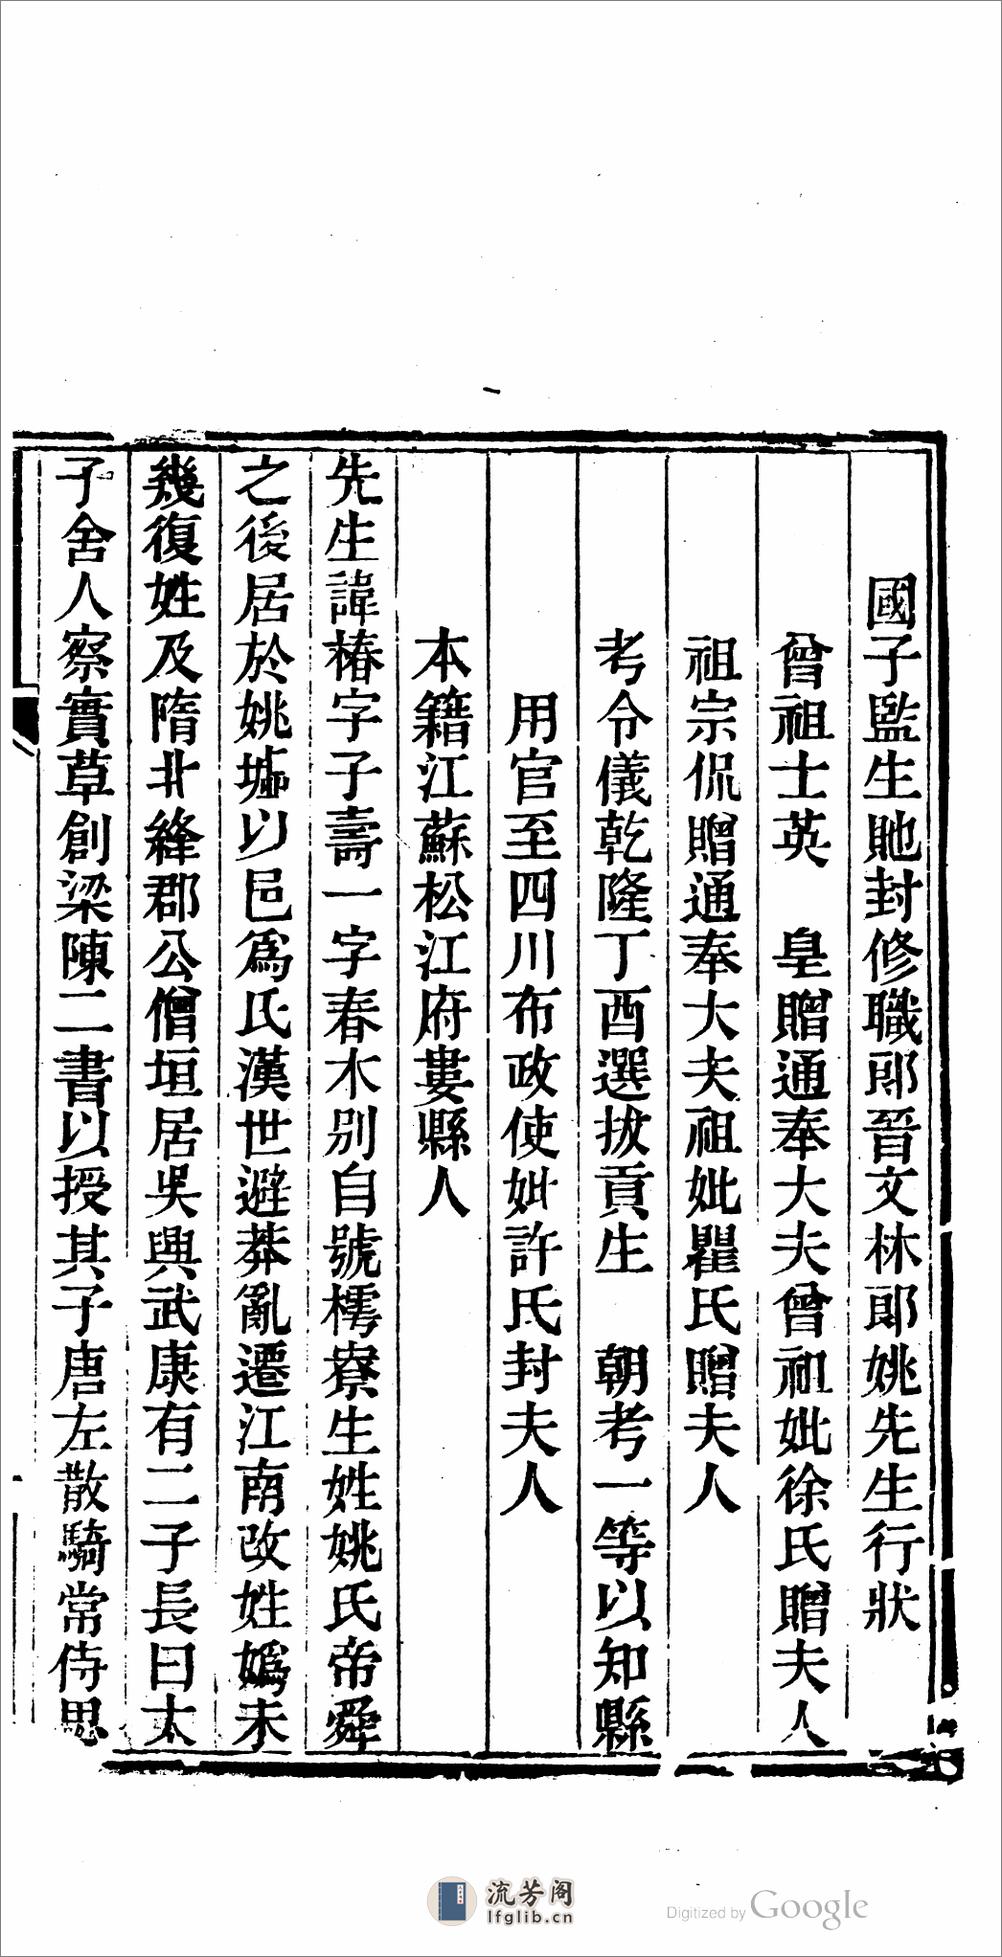 國子監生貤封修職郎晉文林郎姚先生行狀
曾祖士英　皇贈通奉大夫曾祖妣徐氏贈夫人
祖宗侃贈通奉大夫祖妣瞿氏贈夫人
考令儀乾隆丁酉選拔貢生　朝考一等以知縣
用官至四川布政使妣許氏封夫人
本籍江蘇松江府婁縣人
先生諱椿字子壽一字春木別自號樗寮生姓姚氏帝舜
之後居於姚墟以邑爲氏漢世避莽亂遷江南改姓嬀未
幾復姓及隋北絳郡公僧垣居吳興武康有二子長曰太
子舍人察實草創梁陳二書以授其子唐左散騎常侍思
流芳阁
lfglib.cn
Digitized by Google